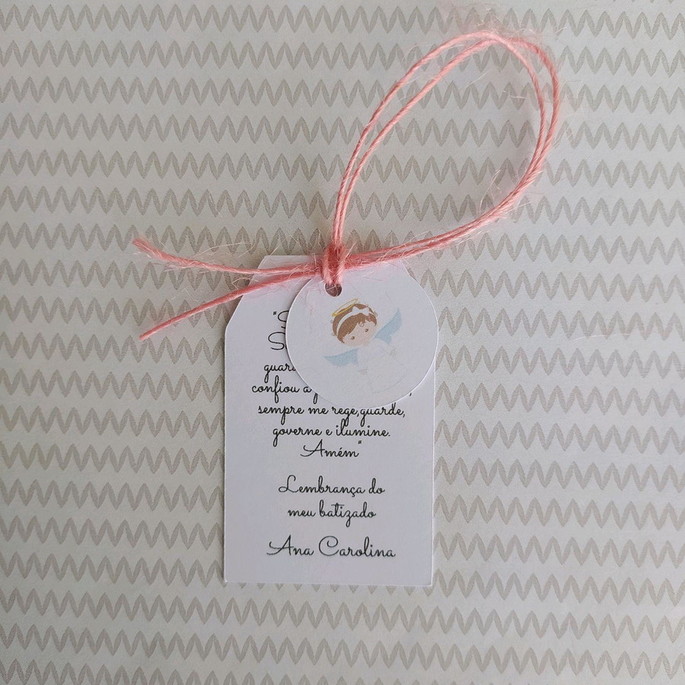 confiou a
sempre me rege,guarde,
governe e ilumine.
Amém"
Lembrança do
meu batizado
Ana Carolina